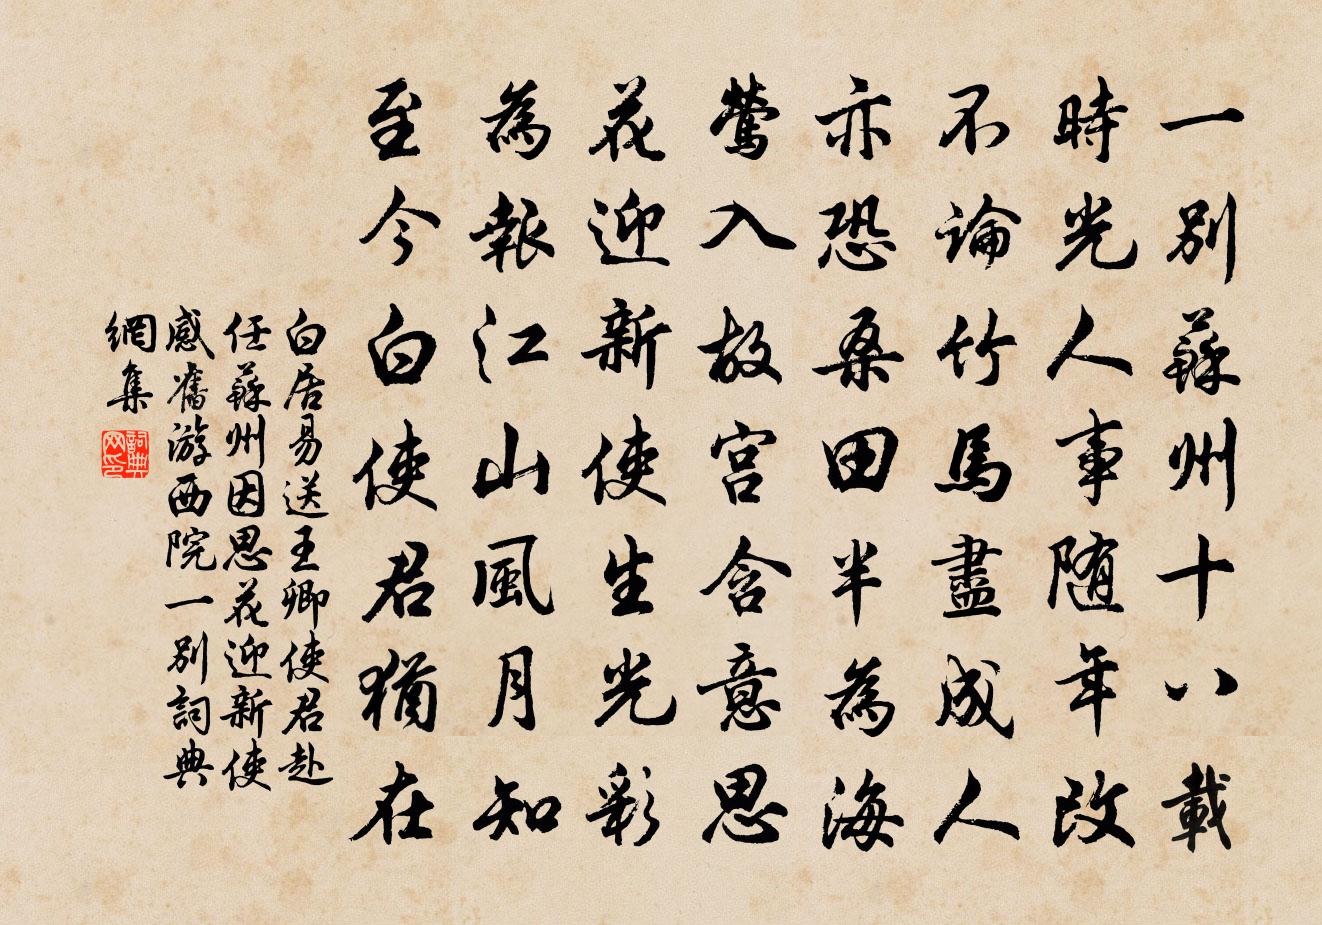 一別蘇州十八載
時光人事随年改
不論竹馬盡成人
亦恐桑田半為海
鶯入故宮含意思
花迎新使生光彩
為報江山風月知
至今白使君猶在
白居易送王卿使君赴
任蘇州因思花迎新使
感舊游西院一別詞典
網集
詞典
网印